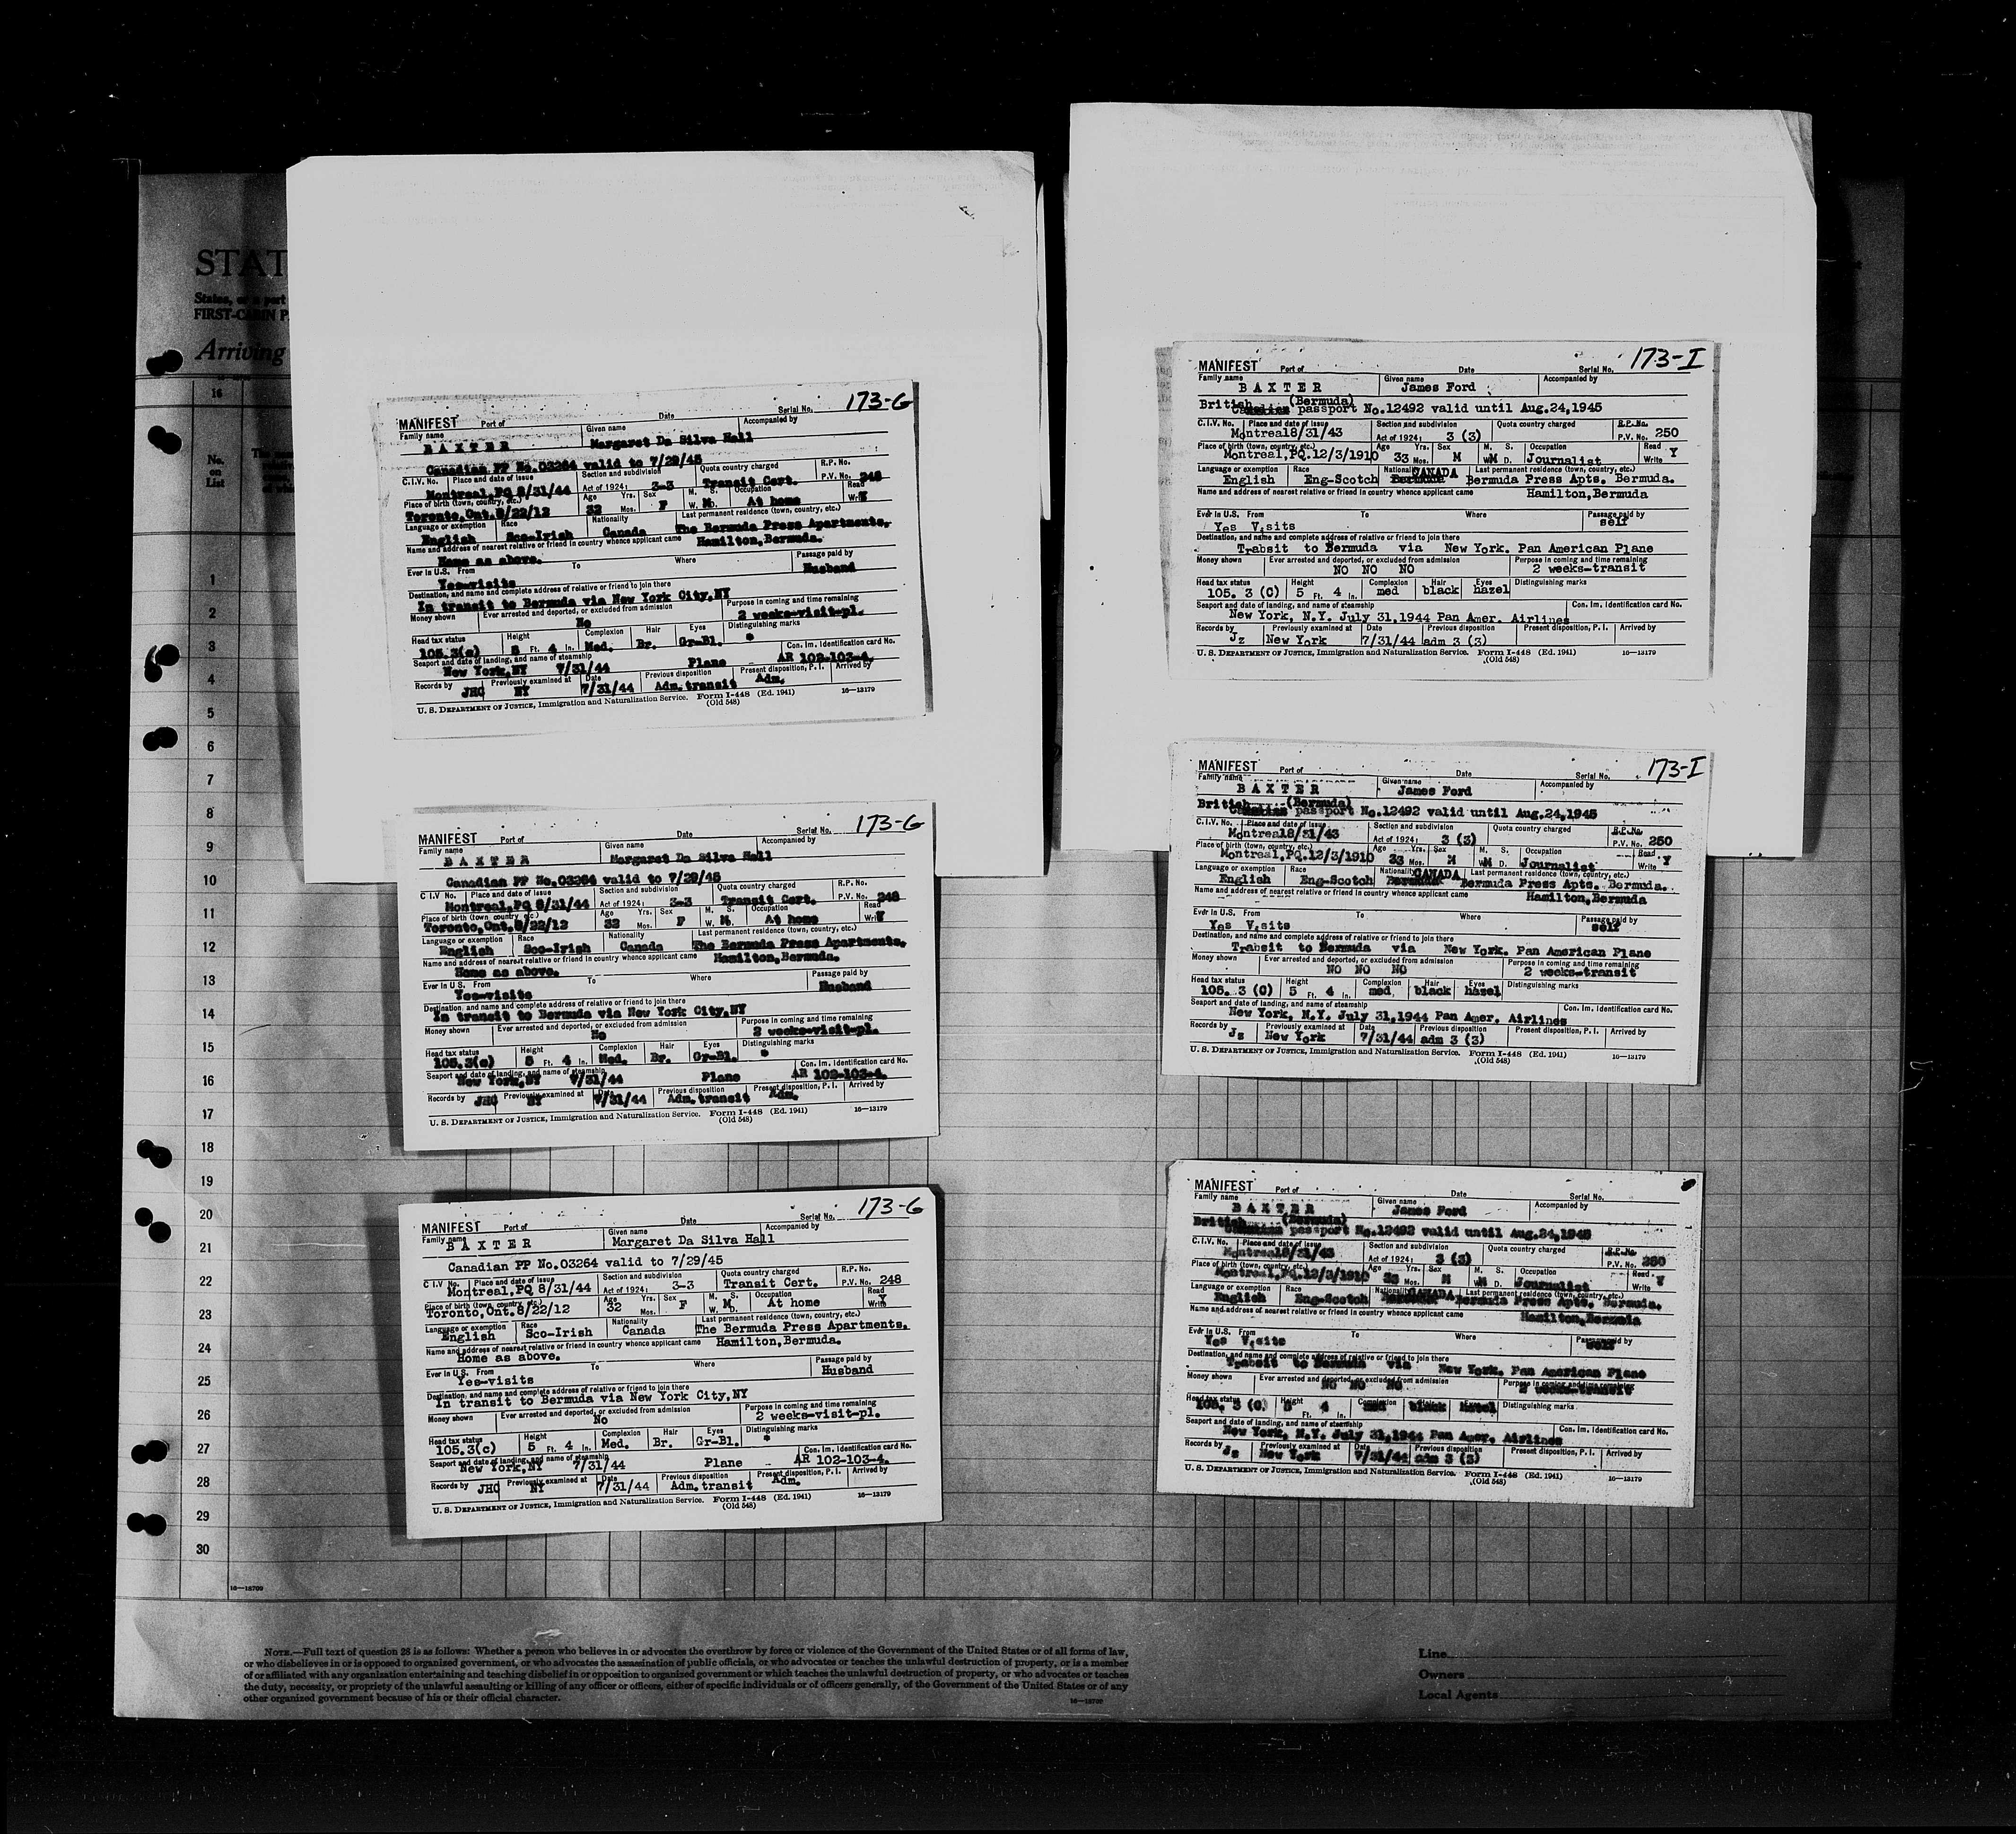 STAT
States, or a port
FIRST-CABIN P
Arriving
16
No.
on
List
1
2
3
4
5
6
7
8
9
10
11
12
13
14
15
16
17
18
19
20
21
22
23
24
25
26
27
28
29
30
16—18700
173-G
MANIFEST Port of Date Serial No.
Family name Given name Accompanied by
BAXTER Margaret Da Silva Hall
Canadian PP No.03264 valid to 7/29/45
C.I.V. No. Place and date of issue Section and subdivision Quota country charged R.P. No.
Montreal,PQ 8/31/44 Act of 1924: 3-3 Transit Cert. P.V. No. 248
Place of birth (town, country, etc.) Age Yrs. Sex M. S. Occupation Read
Toronto,Ont.8/22/12 32 Mos. F W. M D. At home Write Y
Language or exemption Race Nationality Last permanent residence (town, country, etc.)
English Sco-Irish Canada The Bermuda Press Apartments.
Name and address of nearest relative or friend in country whence applicant came Hamilton,Bermuda.
Home as above.
Ever in U.S. From To Where Passage paid by
Yes-visits Husband
Destination, and name and complete address of relative or friend to join there
In transit to Bermuda via New York City,NY
Money shown Ever arrested and deported, or excluded from admission Purpose in coming and time remaining
No 2 weeks-visit-pl.
Head tax status Height Complexion Hair Eyes Distinguishing marks
105.3(c) 5 Ft. 4 In. Med. Br. Gr-Bl. *
Seaport and date of landing, and name of steamship Con. Im. Identification card No.
New York,NY 7/31/44 Plane AR 102-103-4.
Records by Previously examined at Date Previous disposition Present disposition, P. I. Arrived by
JHC NY 7/31/44 Adm.transit Adm.
U. S. DEPARTMENT OF JUSTICE, Immigration and Naturalization Service. Form I-448 (Ed. 1941) 16—13179
(Old 548)
173-G
MANIFEST Port of Date Serial No.
Family name Given name Accompanied by
BAXTER Margaret Da Silva Hall
Canadian PP No.03264 valid to 7/29/45
C I.V No. Place and date of issue Section and subdivision Quota country charged R.P. No.
Montreal,PQ 8/31/44 Act of 1924: 3-3 Transit Cert. P.V. No. 248
Place of birth (town, country, etc.) Age Yrs. Sex M. S. Occupation Read
Toronto,Ont.8/22/12 32 Mos. F W. M D. At home Write Y
Language or exemption Race Nationality Last permanent residence (town, country, etc.)
English Sco-Irish Canada The Bermuda Press Apartments.
Name and address of nearest relative or friend in country whence applicant came Hamilton,Bermuda.
Home as above.
Ever in U S. From To Where Passage paid by
Yes-visits Husband
Destination, and name and complete address of relative or friend to join there
In transit to Bermuda via New York City,NY
Money shown Ever arrested and deported, or excluded from admission Purpose in coming and time remaining
No 2 weeks-visit-pl.
Head tax status Height Complexion Hair Eyes Distinguishing marks
105.3(c) 5 Ft. 4 In. Med. Br. Gr-Bl. *
Seaport and date of landing, and name of steamship Con. Im. Identification card No.
New York,NY 7/31/44 Plane AR 102-103-4.
Records by Previously examined at Date Previous disposition Present disposition, P. I. Arrived by
JHC NY 7/31/44 Adm.transit Adm.
U. S. DEPARTMENT OF JUSTICE, Immigration and Naturalization Service. Form I-448 (Ed. 1941) 16—13179
(Old 548)
173-G
MANIFEST Port of Date Serial No.
Family name Given name Accompanied by
BAXTER Margaret Da Silva Hall
Canadian PP No.03264 valid to 7/29/45
C I.V No. Place and date of issue Section and subdivision Quota country charged R.P. No.
Montreal,PQ 8/31/44 Act of 1924: 3-3 Transit Cert. P.V. No. 248
Place of birth (town, country, etc.) Age Yrs. Sex M. S. Occupation Read
Toronto,Ont.8/22/12 32 Mos. F W. M D. At home Write Y
Language or exemption Race Nationality Last permanent residence (town, country, etc.)
English Sco-Irish Canada The Bermuda Press Apartments.
Name and address of nearest relative or friend in country whence applicant came Hamilton,Bermuda.
Home as above.
Ever in U S. From To Where Passage paid by
Yes-visits Husband
Destination, and name and complete address of relative or friend to join there
In transit to Bermuda via New York City,NY
Money shown Ever arrested and deported, or excluded from admission Purpose in coming and time remaining
No 2 weeks-visit-pl.
Head tax status Height Complexion Hair Eyes Distinguishing marks
105.3(c) 5 Ft. 4 In. Med. Br. Gr-Bl. *
Seaport and date of landing, and name of steamship Con. Im. Identification card No.
New York,NY 7/31/44 Plane AR 102-103-4.
Records by Previously examined at Date Previous disposition Present disposition, P. I. Arrived by
JHC NY 7/31/44 Adm.transit Adm.
U. S. DEPARTMENT OF JUSTICE, Immigration and Naturalization Service. Form I-448 (Ed. 1941) 16—13179
(Old 548)
173-I
MANIFEST Port of Date Serial No.
Family name Given name Accompanied by
BAXTER James Ford
British (Bermuda)
Canadian passport No.12492 valid until Aug.24,1945
C.I.V. No. Place and date of issue Section and subdivision Quota country charged R.P. No.
Montreal8/31/43 Act of 1924: 3 (3) P.V. No. 250
Place of birth (town, country, etc.) Age Yrs. Sex M. S. Occupation Read
Montreal,PQ.12/3/1910 33 Mos. M WM D. Journalist Write Y
Language or exemption Race Nationality CANADA Last permanent residence (town, country, etc.)
English Eng-Scotch Bermuda Bermuda Press Apts. Bermuda.
Name and address of nearest relative or friend in country whence applicant came Hamilton,Bermuda
Ever in U.S. From To Where Passage paid by
Yes V.sits self
Destination, and name and complete address of relative or friend to join there
Trabsit to Bermuda via New York. Pan American Plane
Money shown Ever arrested and deported, or excluded from admission Purpose in coming and time remaining
NO NO NO 2 weeks-transit
Head tax status Height Complexion Hair Eyes Distinguishing marks
105. 3 (C) 5 Ft. 4 In. med black hazel
Seaport and date of landing, and name of steamship Con. Im. Identification card No.
New York, N.Y. July 31,1944 Pan Amer. Airlines
Records by Previously examined at Date Previous disposition Present disposition, P. I. Arrived by
Jz New York 7/31/44 adm 3 (3)
U. S. DEPARTMENT OF JUSTICE, Immigration and Naturalization Service. Form I-448 (Ed. 1941) 16—13179
(Old 548)
173-I
MANIFEST Port of Date Serial No.
Family name Given name Accompanied by
BAXTER James Ford
British (Bermuda)
Canadian passport No.12492 valid until Aug.24,1945
C.I.V. No. Place and date of issue Section and subdivision Quota country charged R.P. No.
Montreal8/31/43 Act of 1924: 3 (3) P.V. No. 250
Place of birth (town, country, etc.) Age Yrs. Sex M. S. Occupation Read
Montreal,PQ.12/3/1910 33 Mos. M WM D. Journalist Write Y
Language or exemption Race Nationality CANADA Last permanent residence (town, country, etc.)
English Eng-Scotch Bermuda Bermuda Press Apts. Bermuda.
Name and address of nearest relative or friend in country whence applicant came Hamilton,Bermuda
Ever in U.S. From To Where Passage paid by
Yes V.sits self
Destination, and name and complete address of relative or friend to join there
Trabsit to Bermuda via New York. Pan American Plane
Money shown Ever arrested and deported, or excluded from admission Purpose in coming and time remaining
NO NO NO 2 weeks-transit
Head tax status Height Complexion Hair Eyes Distinguishing marks
105. 3 (C) 5 Ft. 4 In. med black hazel
Seaport and date of landing, and name of steamship Con. Im. Identification card No.
New York, N.Y. July 31,1944 Pan Amer. Airlines
Records by Previously examined at Date Previous disposition Present disposition, P. I. Arrived by
Jz New York 7/31/44 adm 3 (3)
U. S. DEPARTMENT OF JUSTICE, Immigration and Naturalization Service. Form I-448 (Ed. 1941) 16—13179
(Old 548)
MANIFEST Port of Date Serial No.
Family name Given name Accompanied by
BAXTER James Ford
British (Bermuda)
Canadian passport No.12492 valid until Aug.24,1945
C.I.V. No. Place and date of issue Section and subdivision Quota country charged R.P. No.
Montreal8/31/43 Act of 1924: 3 (3) P.V. No. 250
Place of birth (town, country, etc.) Age Yrs. Sex M. S. Occupation Read
Montreal,PQ.12/3/1910 33 Mos. M WM D. Journalist Write Y
Language or exemption Race Nationality CANADA Last permanent residence (town, country, etc.)
English Eng-Scotch Bermuda Bermuda Press Apts. Bermuda.
Name and address of nearest relative or friend in country whence applicant came Hamilton,Bermuda
Ever in U.S. From To Where Passage paid by
Yes V.sits self
Destination, and name and complete address of relative or friend to join there
Trabsit to Bermuda via New York. Pan American Plane
Money shown Ever arrested and deported, or excluded from admission Purpose in coming and time remaining
NO NO NO 2 weeks-transit
Head tax status Height Complexion Hair Eyes Distinguishing marks
105. 3 (C) 5 Ft. 4 In. med black hazel
Seaport and date of landing, and name of steamship Con. Im. Identification card No.
New York, N.Y. July 31,1944 Pan Amer. Airlines
Records by Previously examined at Date Previous disposition Present disposition, P. I. Arrived by
Jz New York 7/31/44 adm 3 (3)
U. S. DEPARTMENT OF JUSTICE, Immigration and Naturalization Service. Form I-448 (Ed. 1941) 16—13179
(Old 548)
NOTE.—Full text of question 28 is as follows: Whether a person who believes in or advocates the overthrow by force or violence of the Government of the United States or of all forms of law,
or who disbelieves in or is opposed to organized government, or who advocates the assassination of public officials, or who advocates or teaches the unlawful destruction of property, or is a member
of or affiliated with any organization entertaining and teaching disbelief in or opposition to organized government or which teaches the unlawful destruction of property, or who advocates or teaches
the duty, necessity, or propriety of the unlawful assaulting or killing of any officer or officers, either of specific individuals or of officers generally, of the Government of the United States or of any
other organized government because of his or their official character.
16—18700
Line
Owners
Local Agents